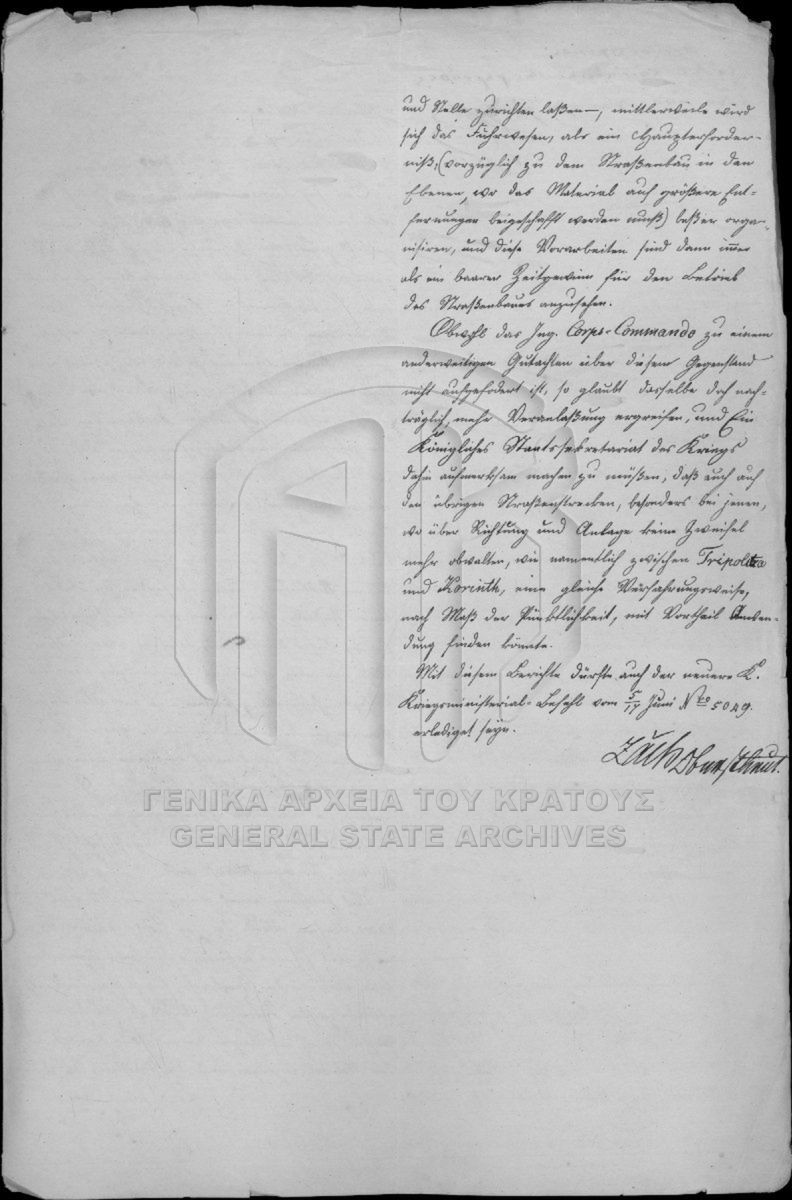 und Stelle zurichten laßen —, mittlerweile wird
sich das Fuhrwesen, als ein Haupterforder-
niß, (vorzüglich zu dem Straßenbau in den
Ebenen, wo das Material auf größere Ent-
fernungen beigeschafft werden muß) beßer orga-
nisiren, und diese Vorarbeiten sind dann immer
als ein baarer Zeitgewinn für den Betrieb
des Straßenbaues anzusehen.
Obwohl das Ing. Corps-Commando zu einem
anderweitigen Gutachten über diesem Gegenstand
nicht aufgefodert ist, so glaubt dasselbe doch nach-
träglich, mehr Veranlaßung ergreifen, und Ein
Königliches Staatssekretariat des Kriegs
dahin aufmerksam machen zu müßen, daß auch auf
den übrigen Straßenstrecken, besonders bei jenen,
wo über Richtung und Anlage keine Zweifel
mehr obwalten, wie namentlich zwischen Tripolitza
und Korinth, eine gleiche Verfahrungsweise,
nach Maß der Pünktlichkeit, mit Vortheil Anwen-
dung finden könnte.
Mit diesem Berichte dürfte auch der neuere K.
Kriegsministerial-Befehl vom 5/17 Juni Nro 5049.
erlediget seyn.
Zäch Oberstlieut.
ΓΕΝΙΚΑ ΑΡΧΕΙΑ ΤΟΥ ΚΡΑΤΟΥΣ
GENERAL STATE ARCHIVES